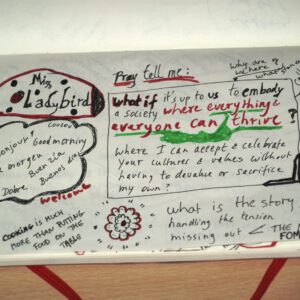 Miss
Ladybird
Coucou
Bonjour! Good morning
morgen Buen zia
Dobre Buenos dia
welcome
COOKING IS MUCH
MORE THAN PUTTING
FOOD ON THE
TABLE
Pray tell me:
what if it's up to us to embody
a society where everything &
everyone can thrive?
where I can accept & celebrate
your cultures & values without
having to devalue or sacrifice
my own?
why are
we here?
what is the story
handling the tension
missing out < THE
FOM